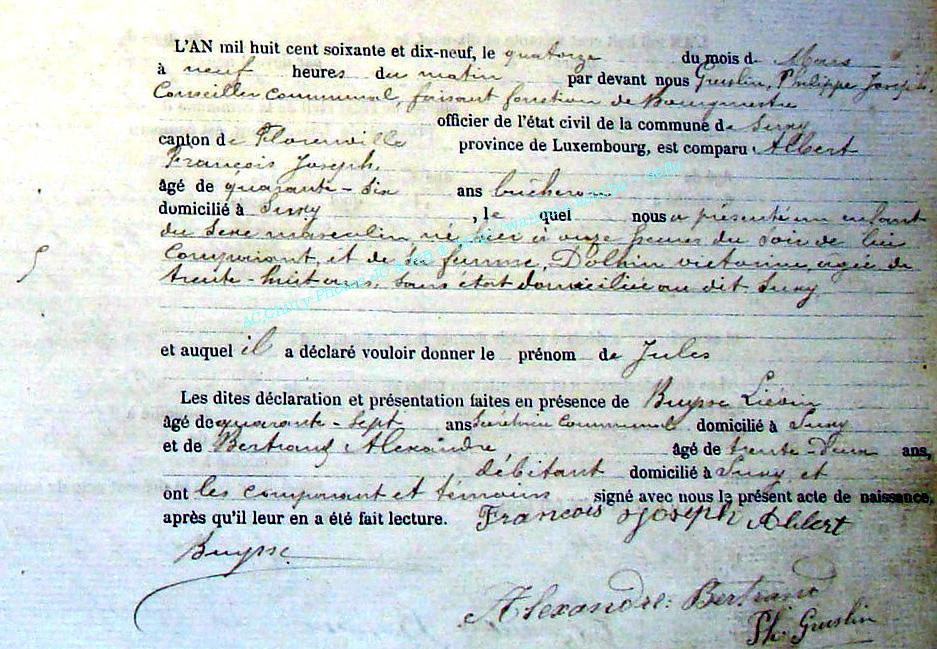 L'AN mil huit cent soixante et dix-neuf, le quatorze du mois de Mars
à neuf heures du matin par devant nous Guislin, Philippe Joseph,
Conseiller Communal, faisant fonction de Bourgmestre
officier de l'état civil de la commune de Suxy
canton de Florenville province de Luxembourg, est comparu Albert
François Joseph,
âgé de quarante-six ans bûcheron
domicilié à Suxy, le quel nous a présenté un enfant
du sexe masculin, né hier à onze heures du soir de lui
Comparant, et de sa femme, Dolhin victorine, agée de
trente-huit ans, sans état domiciliée au dit Suxy
et auquel il a déclaré vouloir donner le prénom de Jules
Les dites déclaration et présentation faites en présence de Buysse Liévin
âgé de quarante-sept ans Secrétaire Communal domicilié à Suxy
et de Bertrand Alexandre âgé de trente-deux ans,
débitant domicilié à Suxy et
ont les comparant et témoins signé avec nous le présent acte de naissance,
après qu'il leur en a été fait lecture. François Joseph Albert
Buysse
Alexandre Bertrand
Ph. Guislin